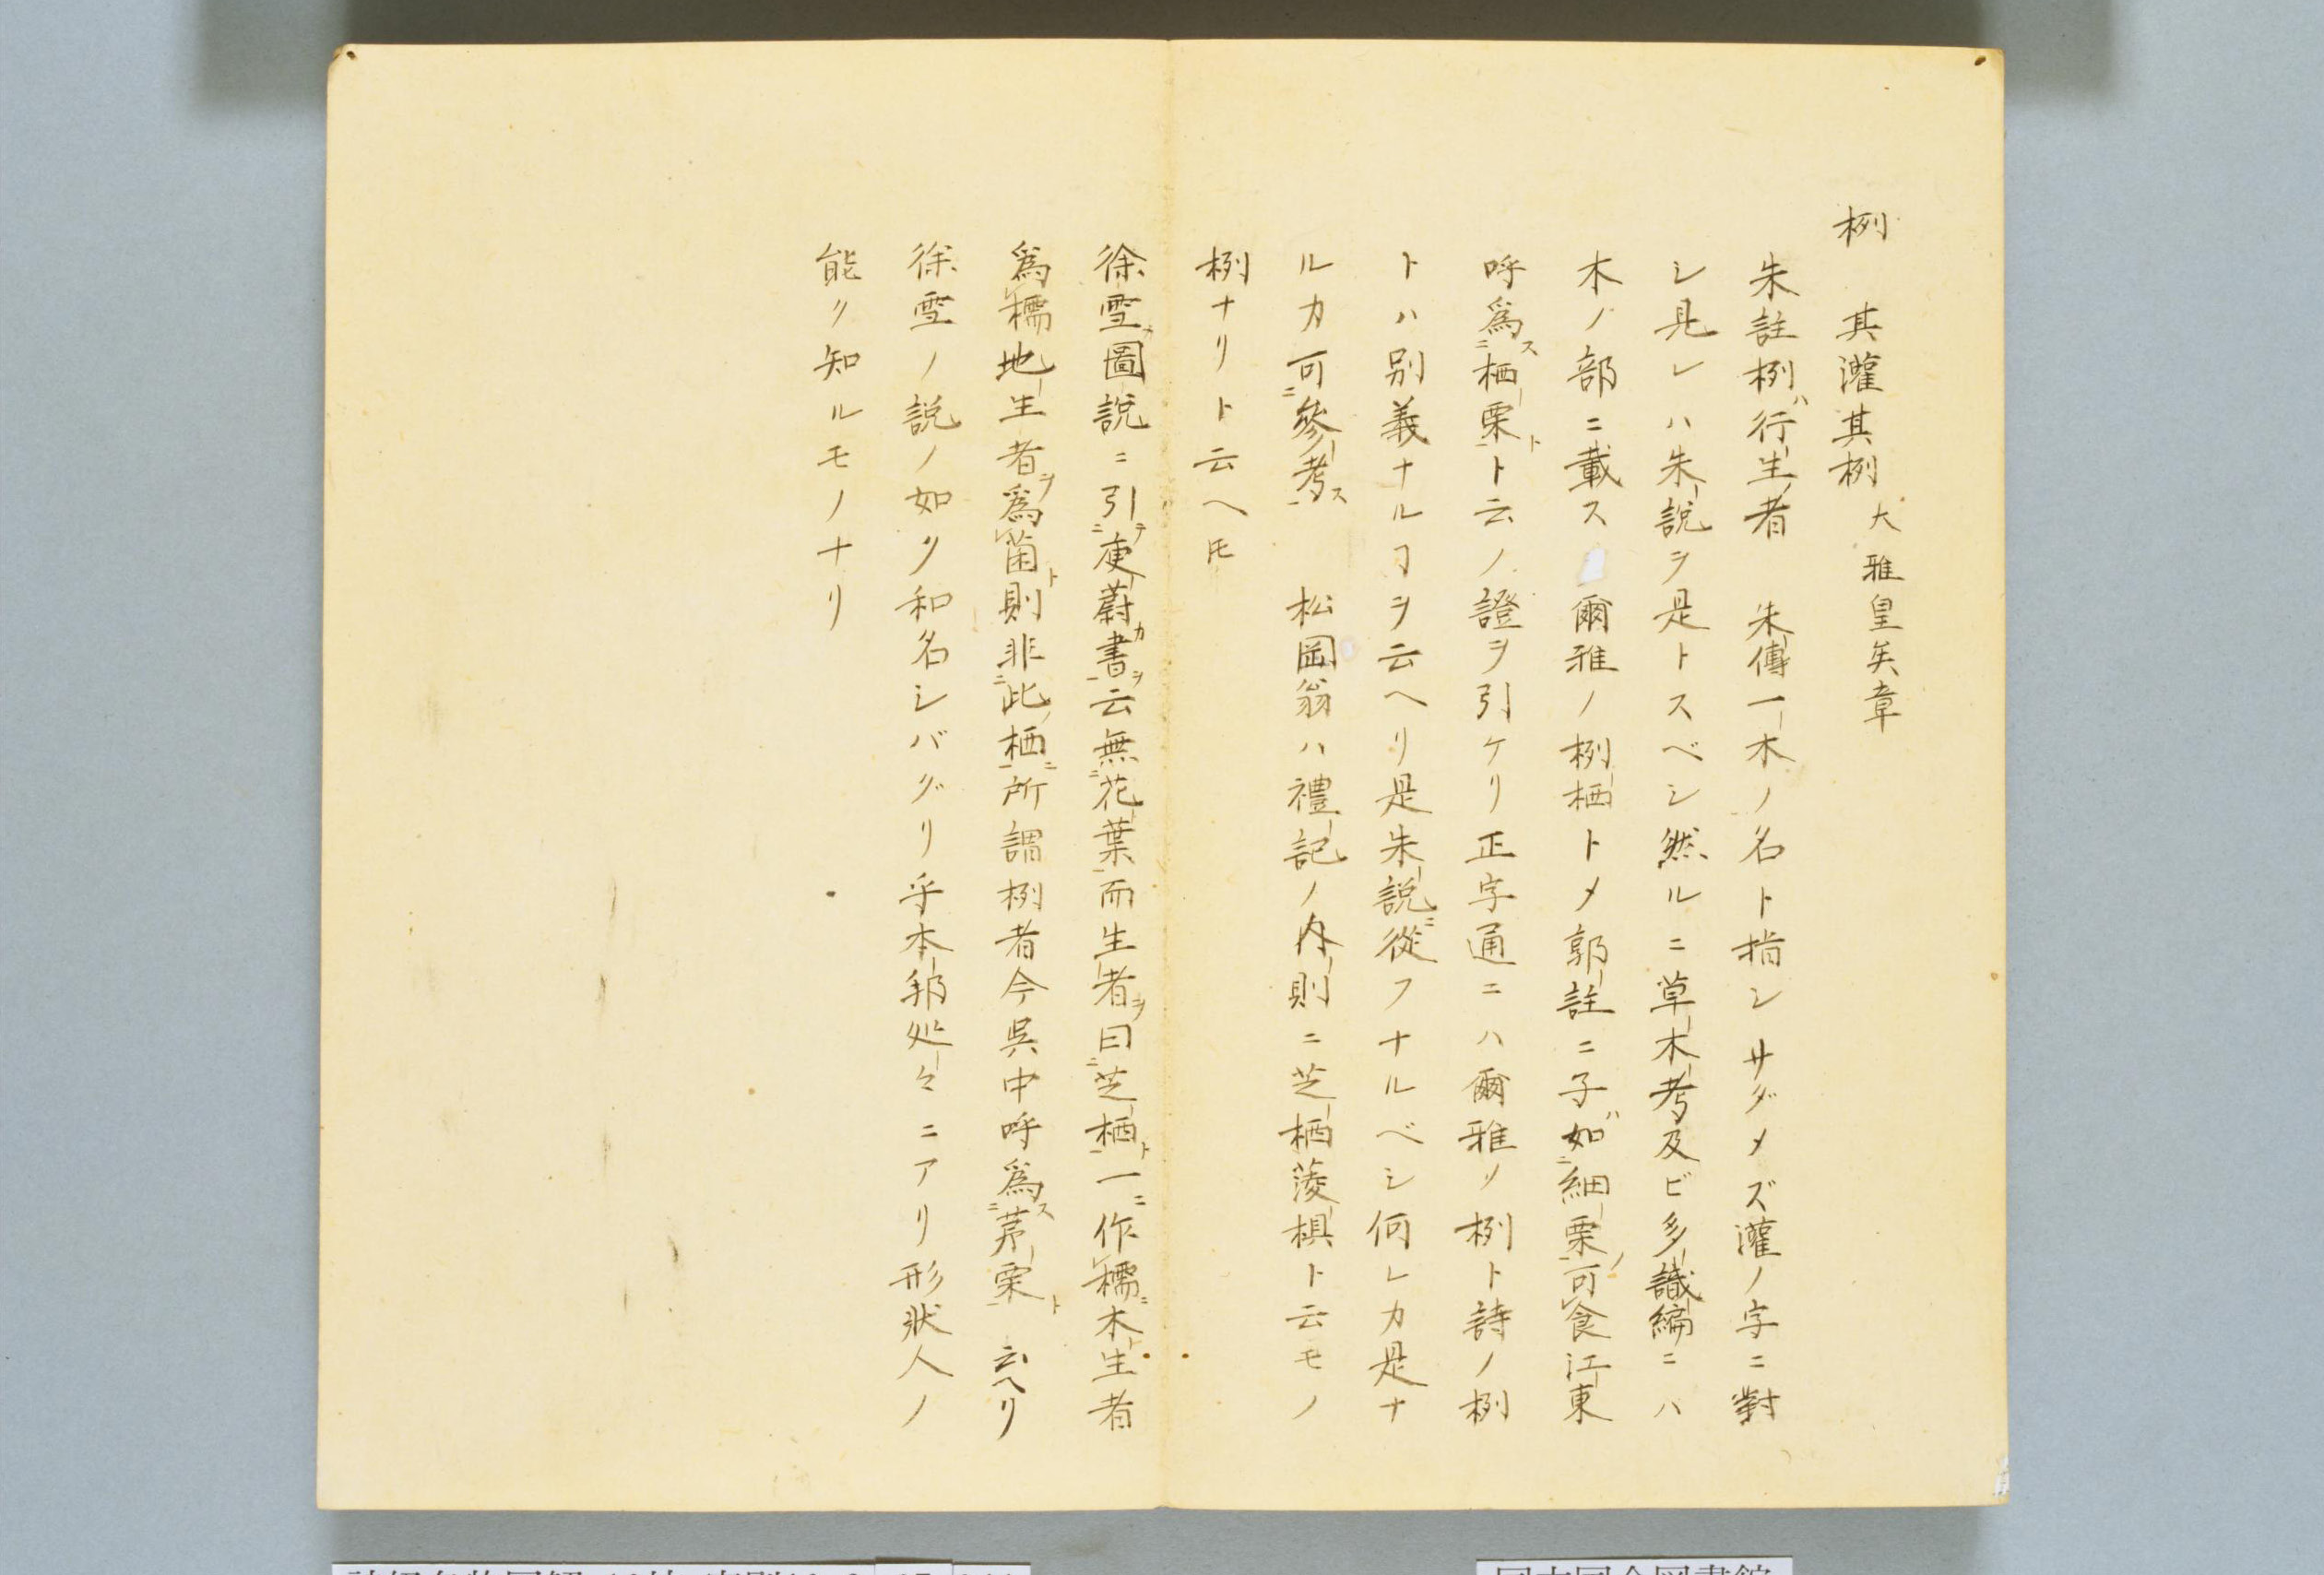 栵　其灌其栵　大雅皇矣章
朱註栵ハ行生者　朱傳一木ノ名ト指シサダメズ灌ノ字ニ對
シ見レハ朱説ヲ是トスベシ然ルニ草木考及ビ多識編ニハ
木ノ部ニ載ス　爾雅ノ栵栭トメ郭註ニ子ハ如細栗ノ可食江東
呼爲ス栭栗トト云ノ證ヲ引ケリ正字通ニハ爾雅ノ栵ト詩ノ栵
トハ別義ナルヿヲ云ヘリ是朱説ニ從フナルベシ何レカ是ナ
ルカ可參考ス　松岡翁ハ禮記ノ内則ニ芝栭蓤椇ト云モノ
栵ナリト云ヘ𪜈
徐雪カ圖説ニ引テ庾蔚カ書ヲ云無花葉而生者ヲ曰芝栭ト一ニ作檽ニ木ニ生者
爲檽地ニ生者ヲ爲菌ト則非此ノ栭ニ所謂栵者今呉中呼爲ス茅栗ト云ヘリ
徐雪ノ説ノ如ク和名シバグリ乎本邦処々ニアリ形状人ノ
能ク知ルモノナリ